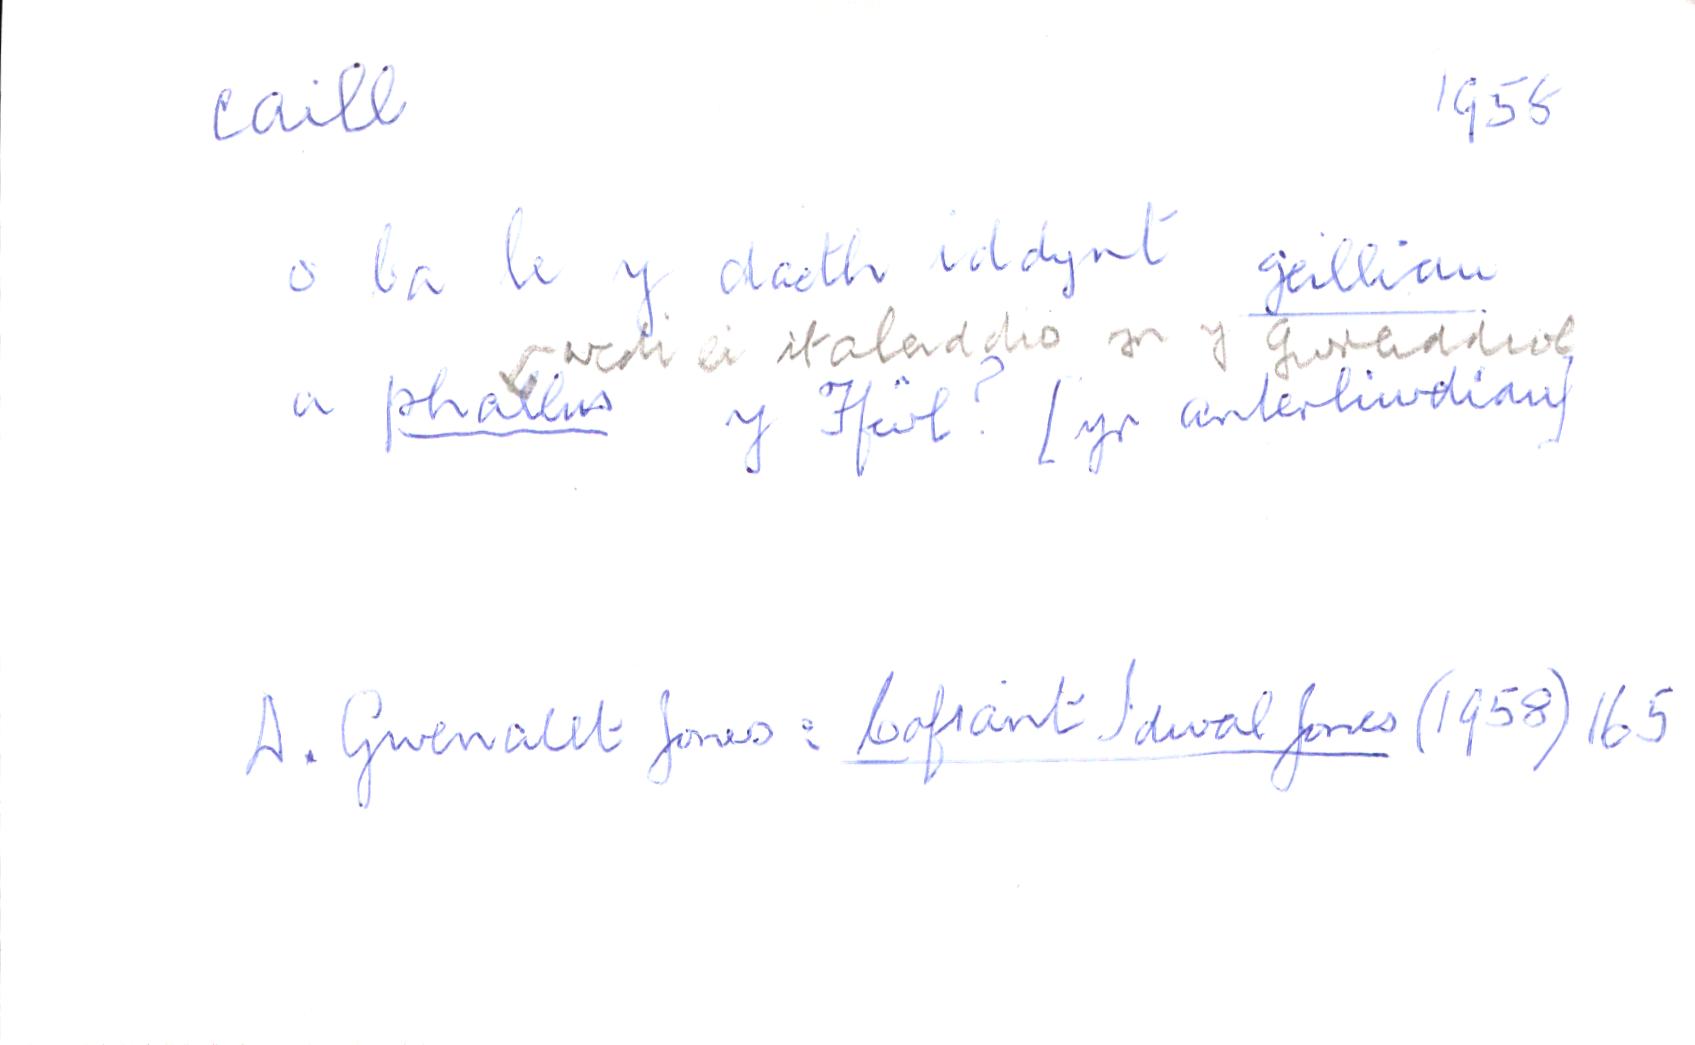 caill 1958
o ba le y daeth iddynt geilliau
wedi ei italeiddio yn y gwreiddiol
a phallus y Ffŵl? [yr anterliwdiau]
D. Gwenallt Jones: Cofiant Idwal Jones (1958) 165